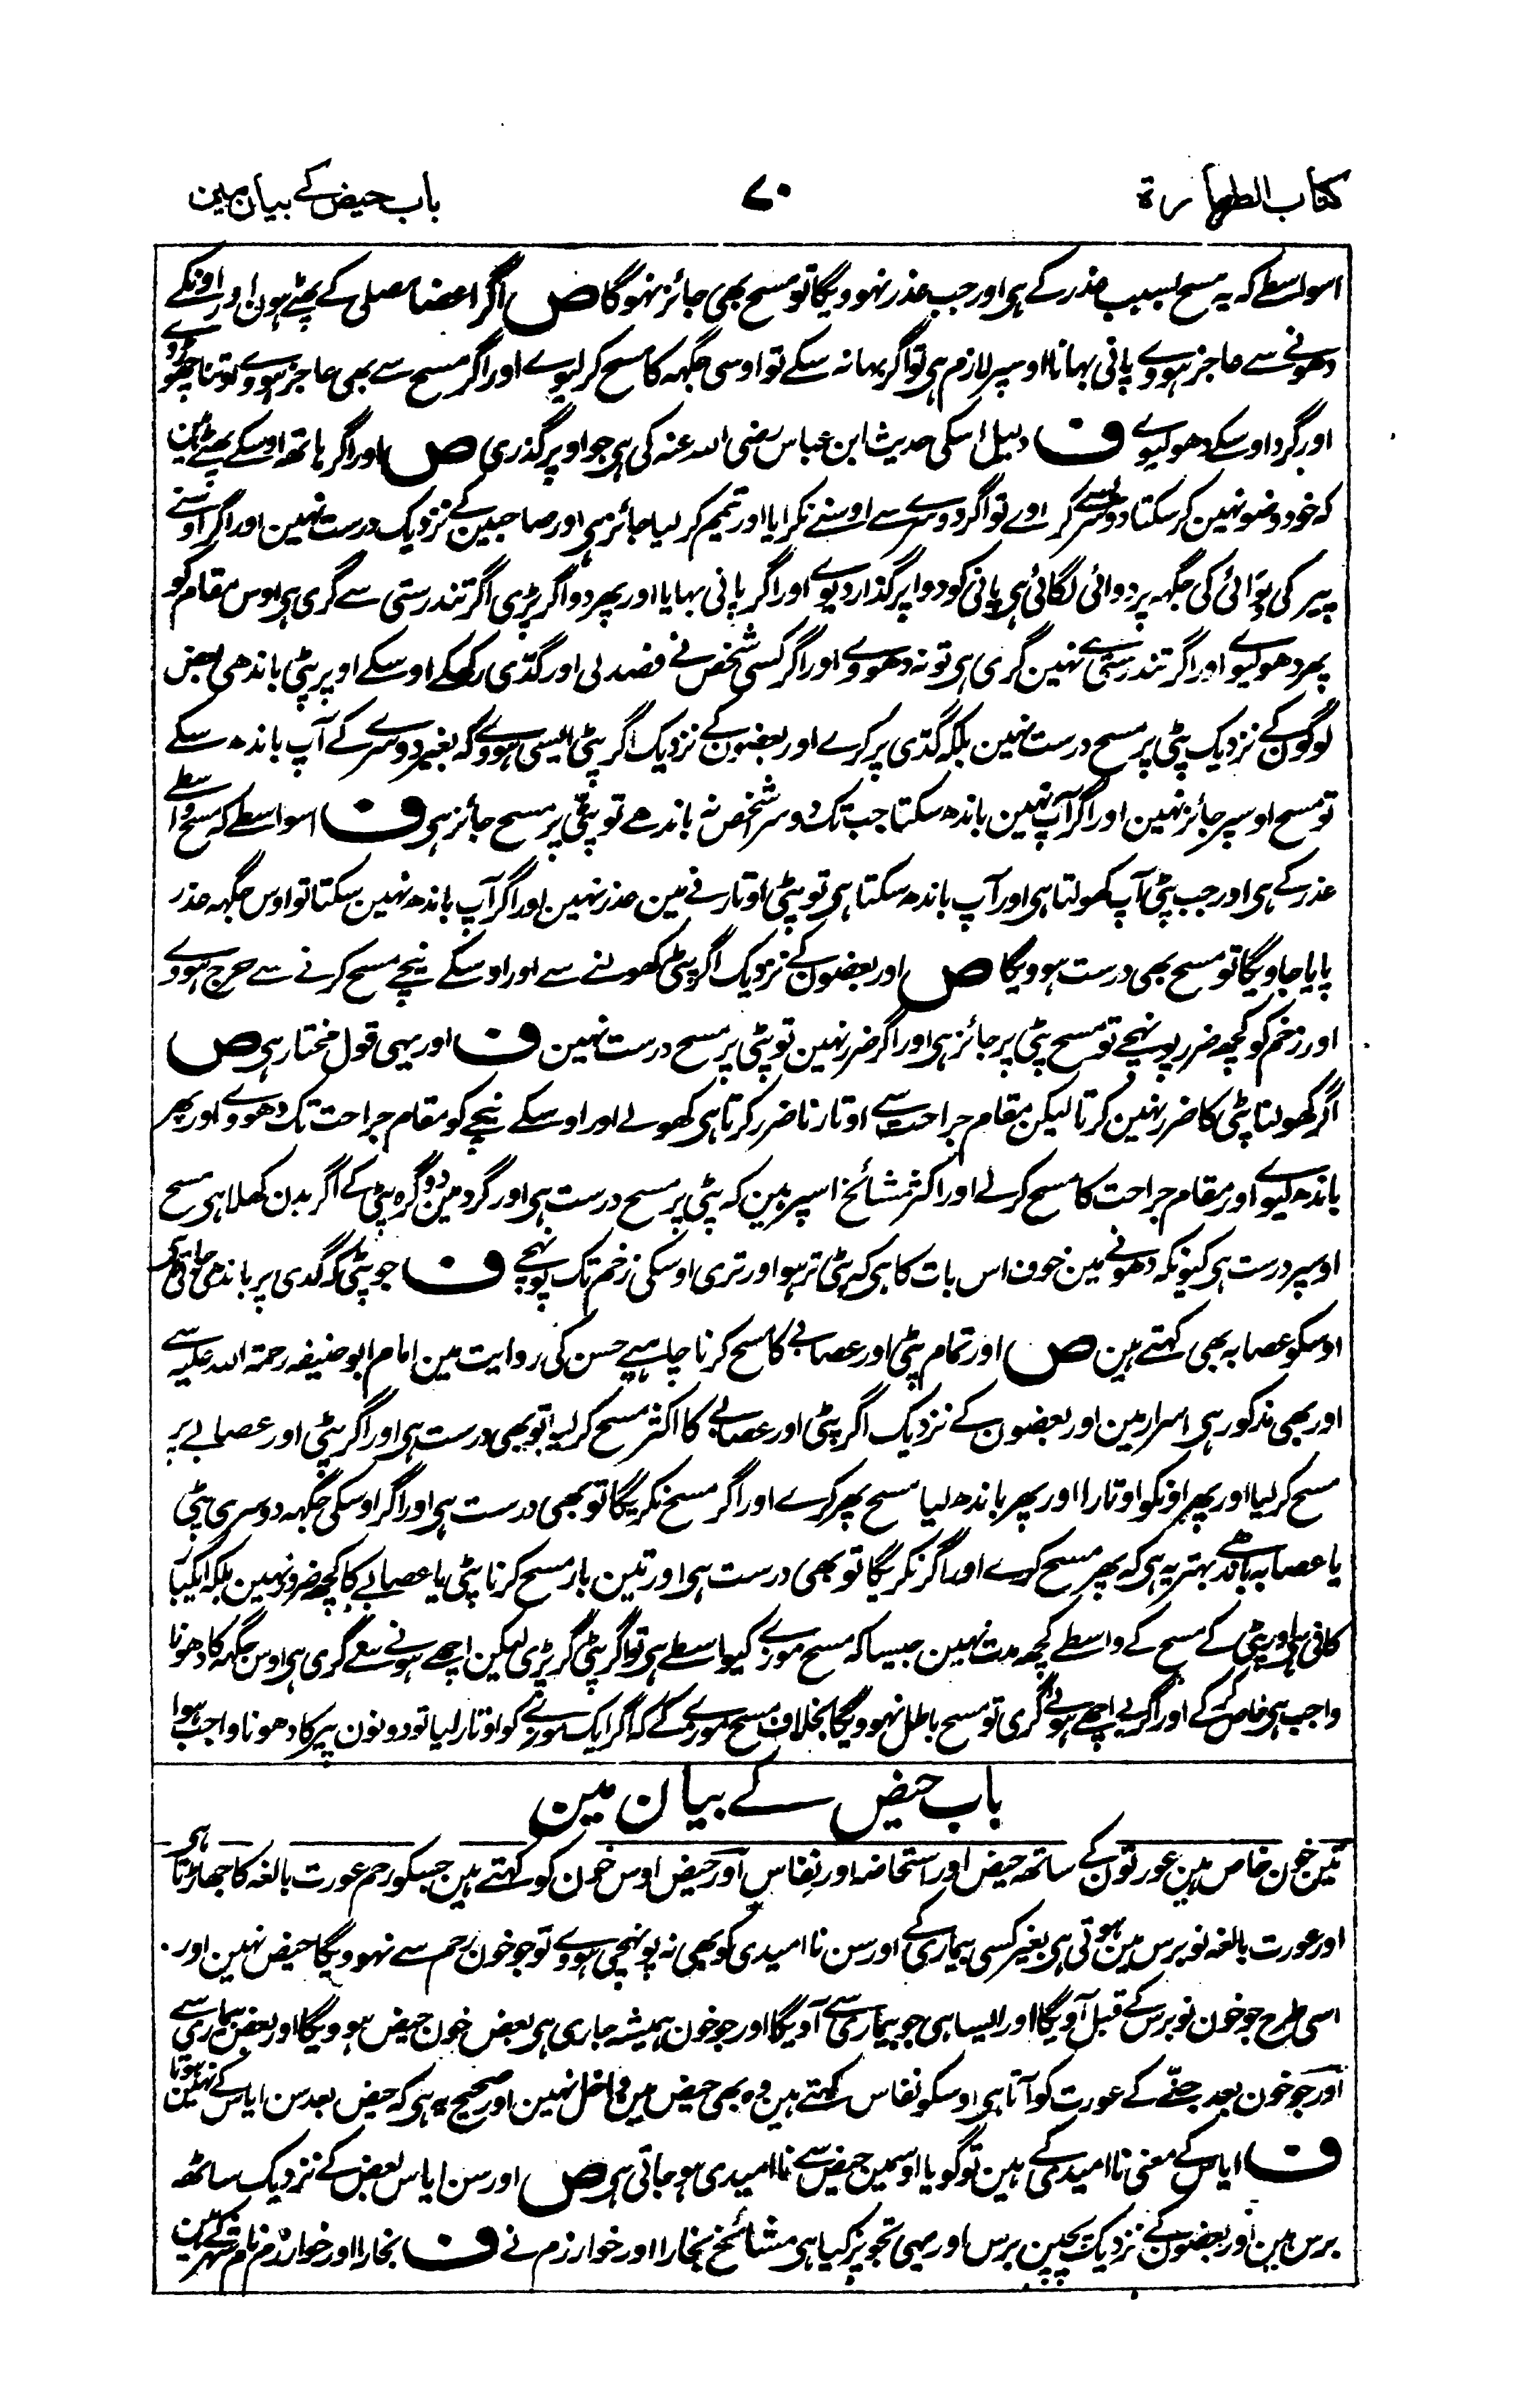 کتاب الطہارۃ
۷۰
باب حیض کے بیان مین
اسواسطے کہ یہ مسح بسبب عذر کے ہی اور جب عذر نہوویگا تو مسح بھی جائز نہوگا ص اگر اعضا مصلی کے پھٹے ہون اور اونکے
دھونے سے عاجز ہووے پانی بہانا اوسپر لازم ہی تو اگر بہا نہ سکے تو اوسی جگہہ کا مسح کر لیوے اور اگر مسح سے بھی عاجز ہووے تو اتنا چھوڑ دے
اور گرد اوسکے دھو لیوے ف دلیل اسکی حدیث ابن عباس رضی اللہ عنہ کی ہی جو اوپر گذری ص اور اگر ہاتھ اوسکے پھٹے ہین
کہ خود وضو نہین کر سکتا دوسرے سے کراوے تو اگر دوسرے سے اوسنے نکرایا اور تیمم کر لیا جائز ہی اور صاحبین کے نزدیک درست نہین اور اگر اوسنے
پیر کی بوائی کی جگہہ پر دوائی لگائی ہی پانی کو دوا پر گذار دیوے اور اگر پانی بہایا اور پھر دوا گر پڑی اگر تندرستی سے گری ہی اوس مقام کو
پھر دھو لیوے اور اگر تندرستی سے نہین گری ہی تو نہ دھووے اور اگر کسی شخص نے فصد لی اور گدّی رکھکے اوسکے اوپر پٹی باندھی بعض
لوگون کے نزدیک پٹی پر مسح درست نہین بلکہ گدّی پر کرے اور بعضون کے نزدیک اگر پٹی ایسی ہووے کہ بغیر دوسرے کے آپ باندھ سکے
تو مسح اوسپر جائز نہین اور اگر آپ نہین باندھ سکتا جب تک دوسرا شخص نہ باندھے تو پٹی پر مسح جائز ہی ف اسواسطے کہ مسح واسطے
عذر کے ہی اور جب پٹی آپ کھولتا ہی اور آپ باندھ سکتا ہی تو پٹی اوتارنے مین عذر نہین اور اگر آپ باندھ نہین سکتا تو اوس جگہہ عذر
پایا جاویگا تو مسح بھی درست ہوویگا ص اور بعضون کے نزدیک اگر پٹی کھولنے سے اور اوسکے نیچے مسح کرنے سے حرج ہووے
اور زخم کو کچھ ضرر پونہچے تو مسح پٹی پر جائز ہی اور اگر ضرر نہین تو پٹی پر مسح درست نہین ف اور یہی قول مختار ہی ص
اگر کھولنا پٹی کا ضرر نہین کرتا لیکن مقام جراحت سے اوتارنا ضرر کرتا ہی کھولے اور اوسکے نیچے کو مقام جراحت تک دھووے اور پھر
باندھ لیوے اور مقام جراحت کا مسح کر لے اور اکثر مشائخ اسپر ہین کہ پٹی پر مسح درست ہی اور گرد مین دو گرہ پٹی کے اگر بدن کھلا ہی مسح
اوسپر درست ہی کیونکہ دھونے مین خوف اس بات کا ہی کہ پٹی تر ہو اور تری اوسکی زخم تک پونہچے ف جو پٹی کہ گدی پر باندھی جاتی ہی
اوسکو عصابہ بھی کہتے ہین ص اور تمام پٹی اور عصابے کا مسح کرنا چاہیے حسن کی روایت مین امام ابو حنیفہ رحمۃ اللہ علیہ سے
اور بھی مذکور ہی اسرار مین اور بعضون کے نزدیک اگر پٹی اور عصابے کا اکثر مسح کر لیا تو بھی درست ہی اور اگر پٹی اور عصابے پر
مسح کر لیا اور پھر اونکو اوتارا اور پھر باندھ لیا مسح پھر کرے اور اگر مسح نکریگا تو بھی درست ہی اور اگر اوسکی جگہہ دوسری پٹی
یا عصابہ باندھے بہتر یہ ہی کہ پھر مسح کرے اور اگر نکریگا تو بھی درست ہی اور تین بار مسح کرنا پٹی یا عصابے کا کچھ ضرور نہین بلکہ ایکبار
کافی ہی اور پٹی کے مسح کے واسطے کچھ مدت نہین جیسا کہ مسح موزے کیواسطے ہی تو اگر پٹی گر پڑی لیکن اچھے ہونے سے گری ہی اوس جگہہ کا دھونا
واجب ہی خاص کرکے اور اگر بے اچھے ہوئے گری تو مسح باطل نہوویگا بخلاف مسح موزے کے کہ اگر ایک موزے کو اوتار لیا تو دونون پیر کا دھونا واجب ہوا
باب حیض کے بیان مین
تین خون خاص ہین عورتون کے ساتھ حیض اور استحاضہ اور نفاس اور حیض اوس خون کو کہتے ہین جسکو رحم عورت بالغہ کا جھاڑتا ہی
اور عورت بالغہ نو برس مین ہوتی ہی بغیر کسی بیماری کے اور سن ناامیدی کو بھی نہ پونہچی ہووے تو جو خون رحم سے نہوویگا حیض نہین اور
اسی طرح جو خون نو برس کے قبل آویگا اور ایسا ہی جو بیماری سے آویگا اور جو خون ہمیشہ جاری ہی بعض خون حیض ہوویگا اور بعض بیماری سے
اور جو خون بعد جننے کے عورت کو آتا ہی اوسکو نفاس کہتے ہین وہ بھی حیض مین داخل نہین اور صحیح یہ ہی کہ حیض بعد سن ایاس کے نہین ہوتا
ف ایاس کے معنی ناامیدی کے ہین تو گویا اوسمین حیض سے ناامیدی ہو جاتی ہی ص اور سن ایاس بعض کے نزدیک ساٹھ
برس ہین اور بعضون کے نزدیک پچپن برس اور یہی تجویز کیا ہی مشائخ بخارا اور خوارزم نے ف بخارا اور خوارزم نام شہر کے ہین